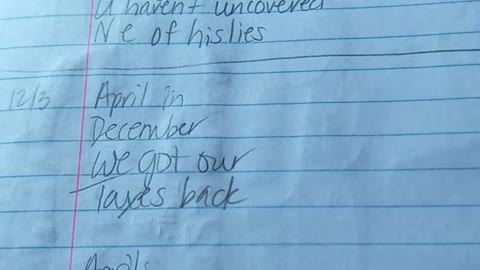 U haven't uncovered
N e of his lies
12/3 April in
December
We got our
Taxes back
April's